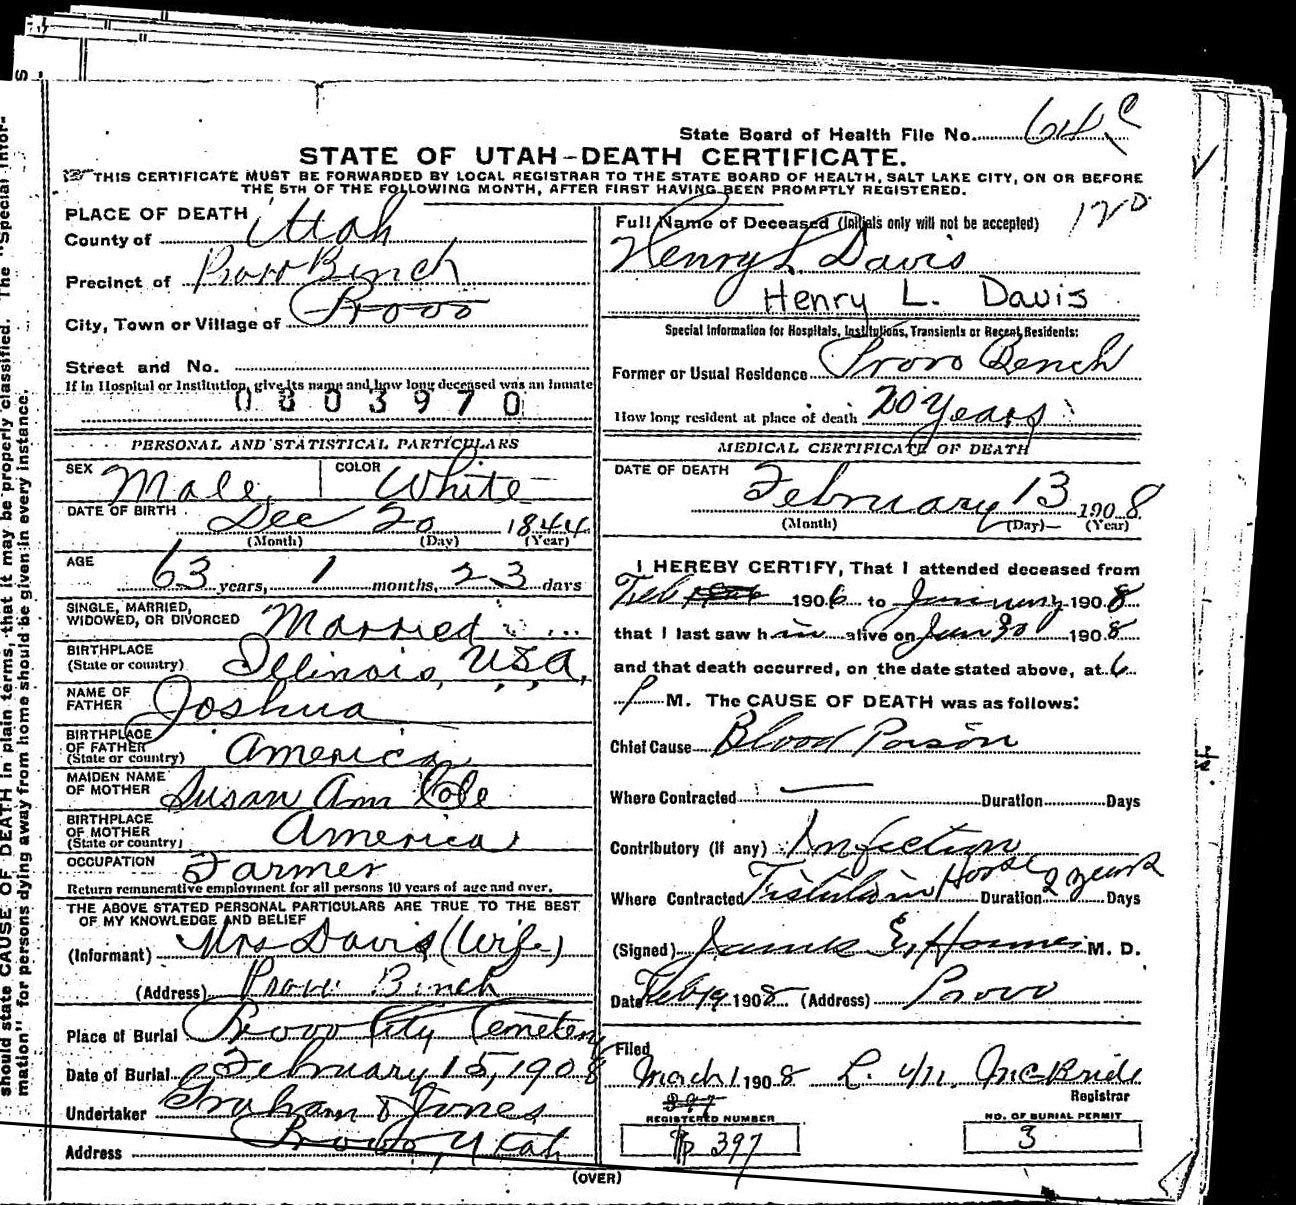 State Board of Health File No. 64 C
STATE OF UTAH—DEATH CERTIFICATE.
THIS CERTIFICATE MUST BE FORWARDED BY LOCAL REGISTRAR TO THE STATE BOARD OF HEALTH, SALT LAKE CITY, ON OR BEFORE
THE 5TH OF THE FOLLOWING MONTH, AFTER FIRST HAVING BEEN PROMPTLY REGISTERED.
PLACE OF DEATH
County of Utah
Precinct of Provo Bench
City, Town or Village of Provo
Street and No.
If in Hospital or Institution, give its name and how long deceased was an inmate
0803970
PERSONAL AND STATISTICAL PARTICULARS
SEX Male COLOR White
DATE OF BIRTH Dec 20 1844
(Month) (Day) (Year)
AGE 63 years, 1 months, 23 days
SINGLE, MARRIED,
WIDOWED, OR DIVORCED Married
BIRTHPLACE
(State or country) Illinois, U.S.A.
NAME OF
FATHER Joshua
BIRTHPLACE
OF FATHER
(State or country) America
MAIDEN NAME
OF MOTHER Susan Ann Cole
BIRTHPLACE
OF MOTHER
(State or country) America
OCCUPATION Farmer
Return remunerative employment for all persons 10 years of age and over.
THE ABOVE STATED PERSONAL PARTICULARS ARE TRUE TO THE BEST
OF MY KNOWLEDGE AND BELIEF
(Informant) Mrs Davis (Wife)
(Address) Provo Bench
Place of Burial Provo City Cemetery
Date of Burial February 15, 1908
Undertaker Graham & Jones
Address Provo, Utah
Full Name of Deceased (Initials only will not be accepted)
Henry L. Davis
Henry L. Davis
Special Information for Hospitals, Institutions, Transients or Recent Residents:
Former or Usual Residence Provo Bench
How long resident at place of death 20 Years
MEDICAL CERTIFICATE OF DEATH
DATE OF DEATH February 13 1908
(Month) (Day) (Year)
I HEREBY CERTIFY, That I attended deceased from
Feb 1906 to January 1908
that I last saw him alive on Jan 30 1908
and that death occurred, on the date stated above, at 6
P M. The CAUSE OF DEATH was as follows:
Chief Cause Blood Poison
Where Contracted Duration Days
Contributory (If any) Infection
Where Contracted Fistula in Horse Duration 2 years Days
(Signed) James E. M. D.
Date Feb 19 1908 (Address) Provo
Filed
March 1 1908 L. McBride
Registrar
397
REGISTERED NUMBER
397
NO. OF BURIAL PERMIT
3
(OVER)
should state CAUSE OF DEATH in plain terms, that it may be properly classified. The "Special Infor-
mation" for persons dying away from home should be given in every instance.